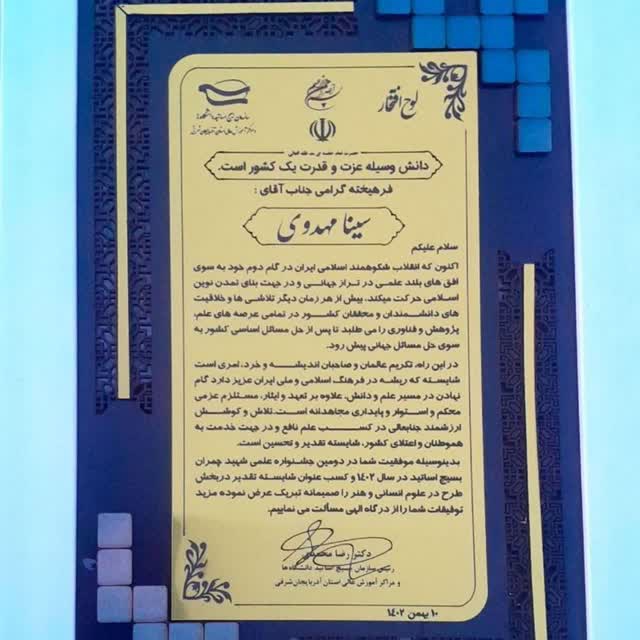 لوح افتخار
سازمان بسیج اساتید دانشگاه‌ها
و مراکز آموزش عالی استان آذربایجان شرقی
دانش وسیله عزت و قدرت یک کشور است.
فرهیخته گرامی جناب آقای :
سینا مهدوی
سلام علیکم
اکنون که انقلاب شکوهمند اسلامی ایران در گام دوم خود به سوی
افق های بلند علمی در تراز جهانی و در جهت بنای تمدن نوین
اسلامی حرکت میکند، بیش از هر زمان دیگر تلاشی ها و خلاقیت
های دانشمندان و محققان کشور در تمامی عرصه های علم،
پژوهش و فناوری را می طلبد تا پس از حل مسائل اساسی کشور به
سوی حل مسائل جهانی پیش رود.
در این راه، تکریم عالمان و صاحبان اندیشه و خرد، امری است
شایسته که ریشه در فرهنگ اسلامی و ملی ایران عزیز دارد گام
نهادن در مسیر علم و دانش، علاوه بر تعهد و ایثار، مستلزم عزمی
محکم و استوار و پایداری مجاهدانه است. تلاش و کوشش
ارزشمند جنابعالی در کسب علم نافع و در جهت خدمت به
هموطنان و اعتلای کشور، شایسته تقدیر و تحسین است.
بدینوسیله موفقیت شما در دومین جشنواره علمی شهید چمران
بسیج اساتید در سال ۱۴۰۲ و کسب عنوان شایسته تقدیر دربخش
طرح در علوم انسانی و هنر را صمیمانه تبریک عرض نموده مزید
توفیقات شما را از درگاه الهی مسألت می نماییم.
دکتر رضا
رئیس سازمان بسیج اساتید دانشگاه ها
و مراکز آموزش عالی استان آذربایجان شرقی
۱۰ بهمن ۱۴۰۲